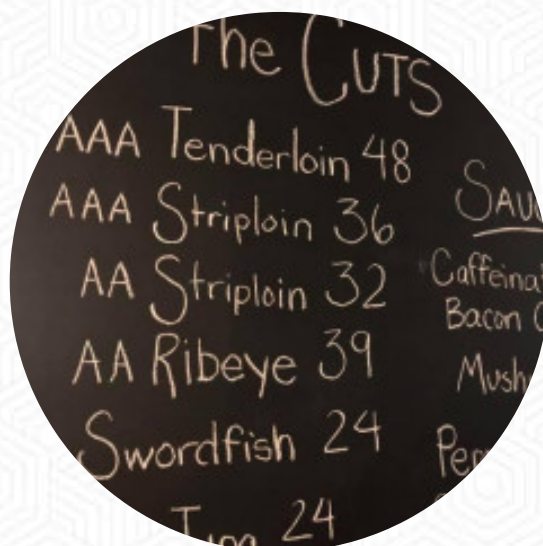 The Cuts
AAA Tenderloin 48
AAA Striploin 36
AA Striploin 32
AA Ribeye 39
Swordfish 24
Tuna 24
Bacon